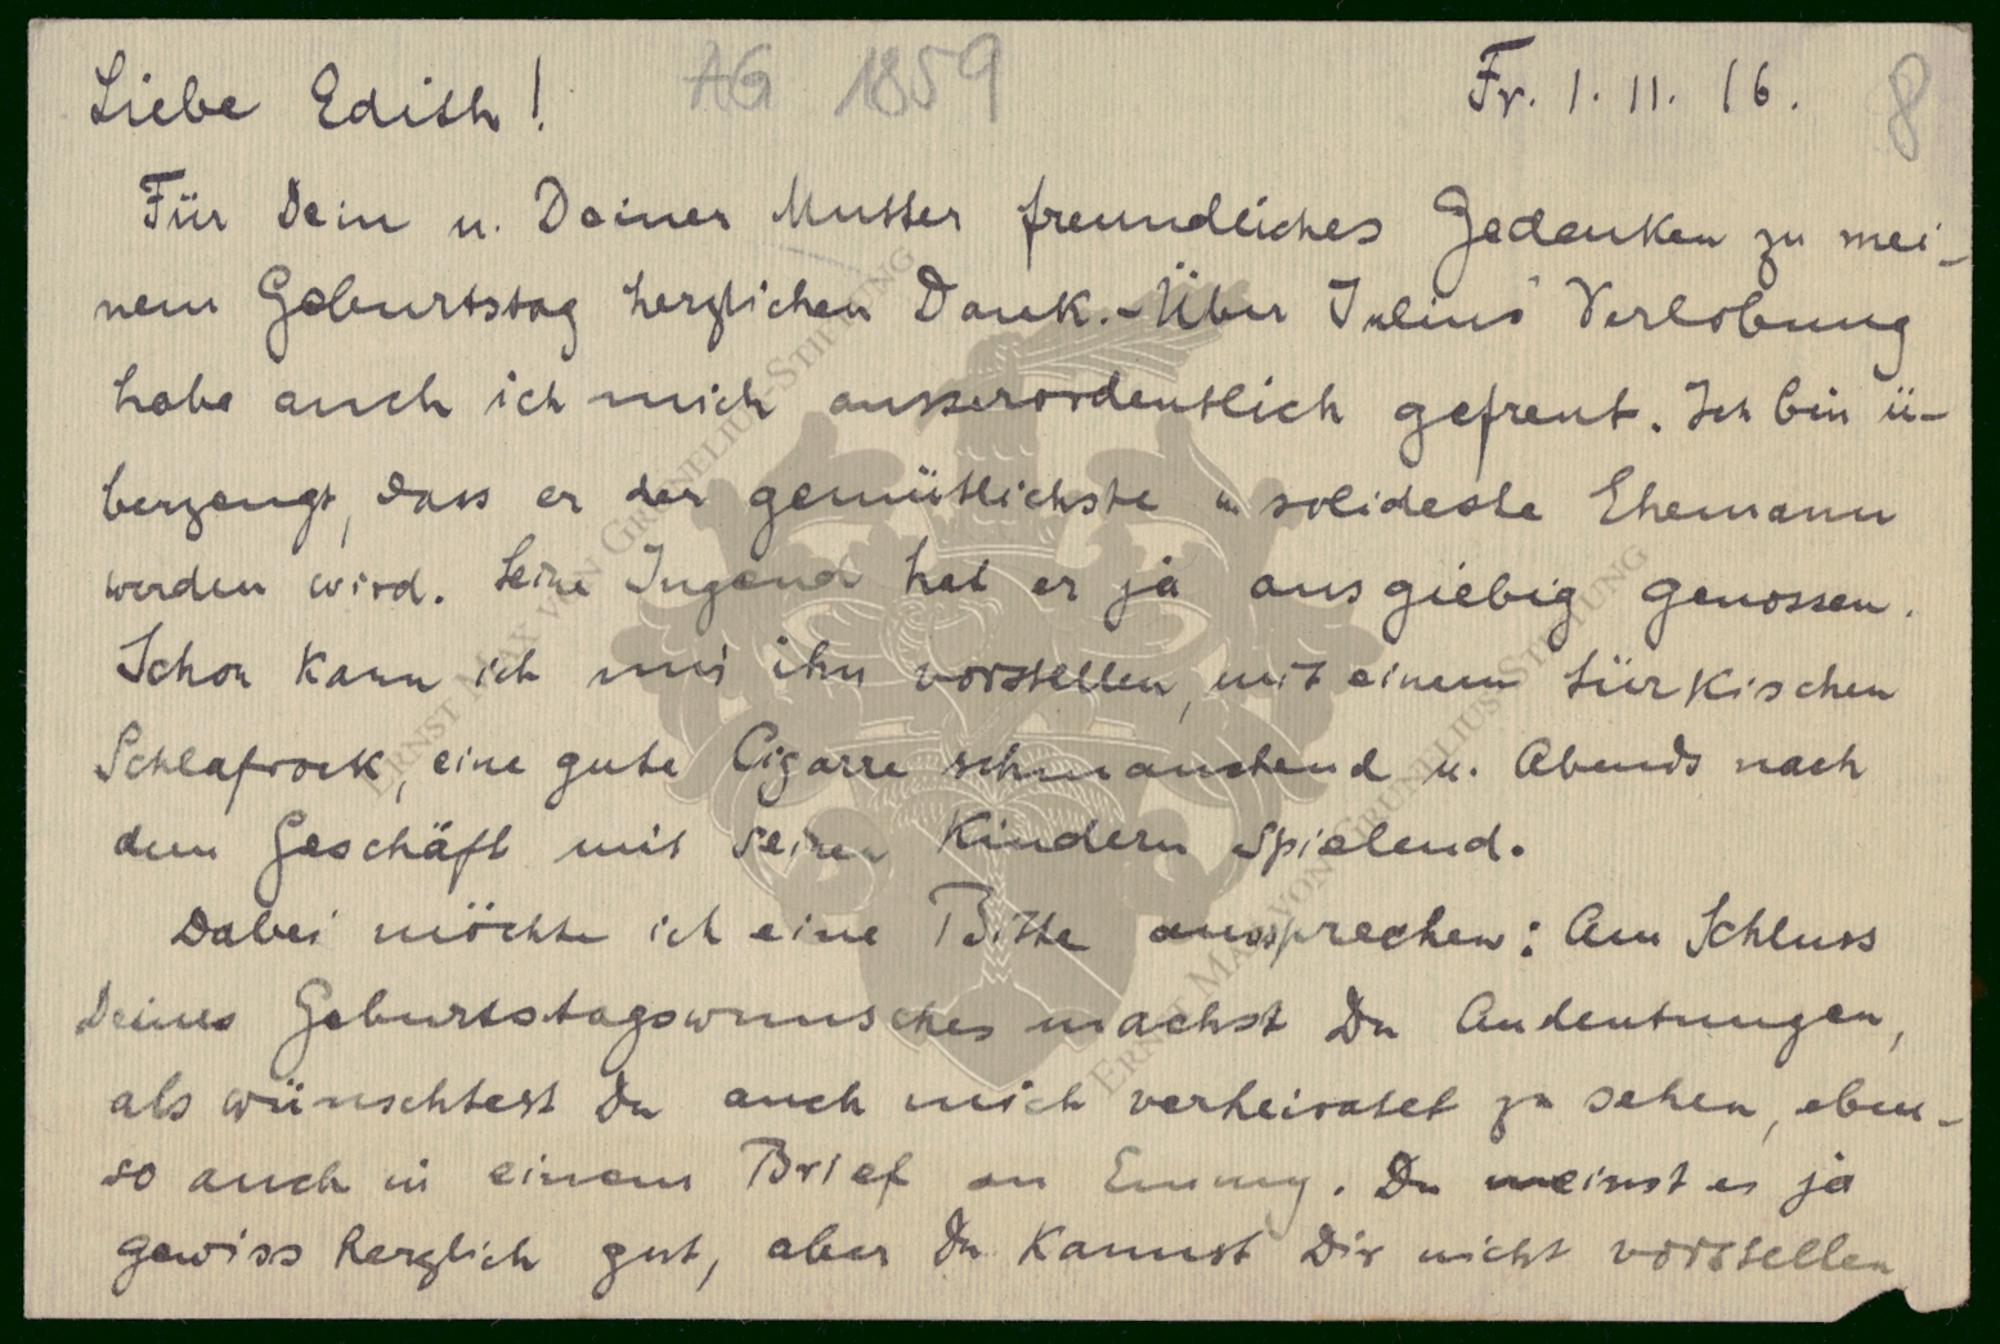 AG 1859
Fr. 1. 11. 16.
8
Liebe Edith!
Für Dein u. Deiner Mutter freundliches Gedenken zu mei-
nem Geburtstag herzlichen Dank. - Über Julius' Verlobung
habe auch ich mich ausserordentlich gefreut. Ich bin ü-
berzeugt, dass er der gemütlichste u solideste Ehemann
werden wird. Seine Jugend hat er ja ausgiebig genossen.
Schon kann ich mir ihn vorstellen, mit einem türkischen
Schlafrock, eine gute Cigarre schmauchend u. Abends nach
dem Geschäft mit seinen Kindern spielend.
Dabei möchte ich eine Bitte aussprechen: Am Schluss
Deines Geburtstagswunsches machst Du Andeutungen,
als wünschtest Du auch mich verheiratet zu sehen, eben-
so auch in einem Brief an Emmy. Du meinst es ja
gewiss herzlich gut, aber Du kannst Dir nicht vorstellen
ERNST MAX VON GRUNELIUS-STIFTUNG
ERNST MAX VON GRUNELIUS-STIFTUNG